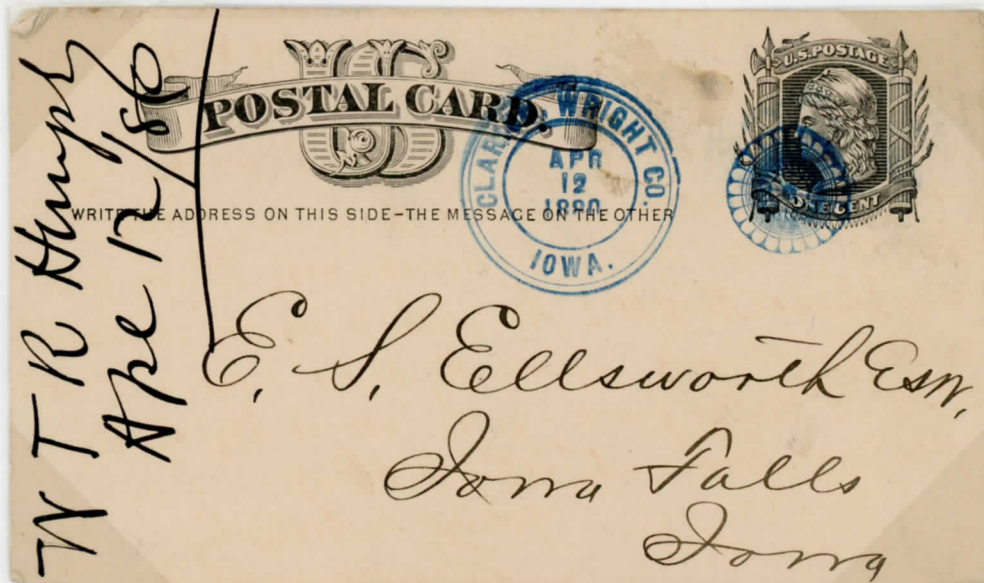 W T R Humph
Apr 12/80
US
POSTAL CARD.
WRITE THE ADDRESS ON THIS SIDE-THE MESSAGE ON THE OTHER
WRIGHT CO.
APR
12
1880
IOWA.
U.S. POSTAGE
ONE CENT
E. S. Ellsworth Esq.
Iowa Falls
Iowa